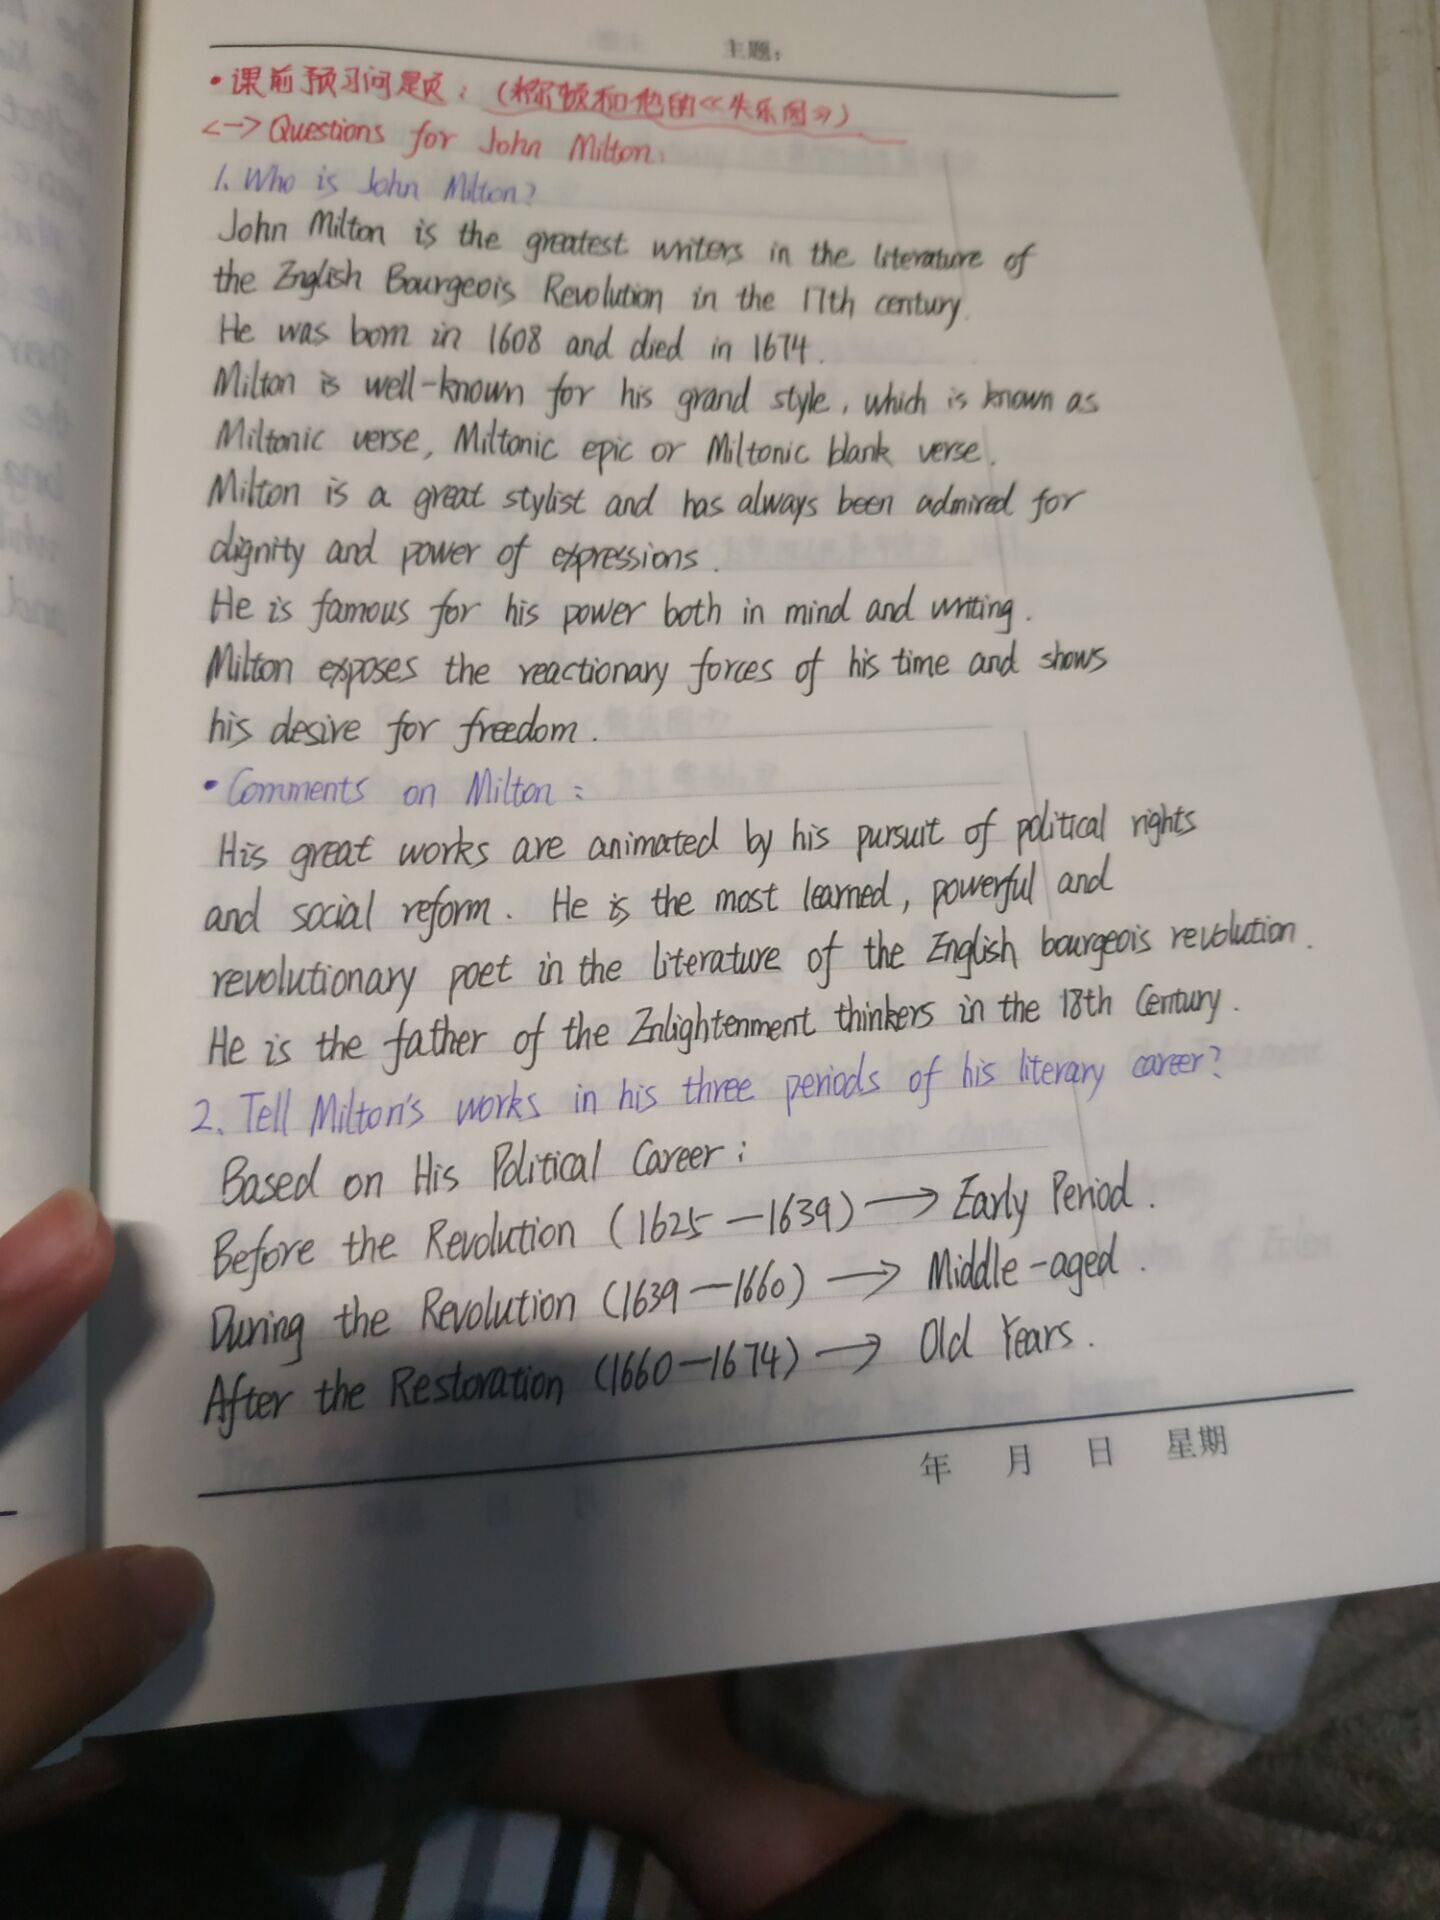 主题:
• 课前预习问题: (弥尔顿和他的《失乐园》)
<一> Questions for John Milton:
1. Who is John Milton?
John Milton is the greatest writers in the literature of
the English Bourgeois Revolution in the 17th century.
He was born in 1608 and died in 1674.
Milton is well-known for his grand style, which is known as
Miltonic verse, Miltonic epic or Miltonic blank verse.
Milton is a great stylist and has always been admired for
dignity and power of expressions.
He is famous for his power both in mind and writing.
Milton exposes the reactionary forces of his time and shows
his desire for freedom.
• Comments on Milton:
His great works are animated by his pursuit of political rights
and social reform. He is the most learned, powerful and
revolutionary poet in the literature of the English bourgeois revolution.
He is the father of the Enlightenment thinkers in the 18th Century.
2. Tell Milton's works in his three periods of his literary career?
Based on His Political Career:
Before the Revolution (1625—1639) → Early Period.
During the Revolution (1639—1660) → Middle-aged.
After the Restoration (1660—1674) → Old Years.
年 月 日 星期